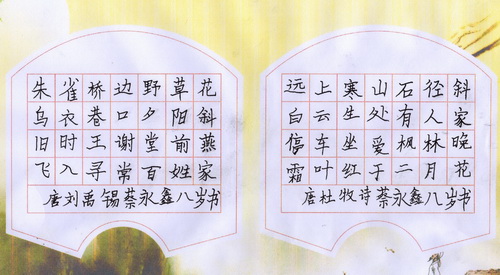 朱雀桥边野草花
乌衣巷口夕阳斜
旧时王谢堂前燕
飞入寻常百姓家
唐刘禹锡蔡永鑫八岁书
远上寒山石径斜
白云生处有人家
停车坐爱枫林晚
霜叶红于二月花
唐杜牧诗蔡永鑫八岁书